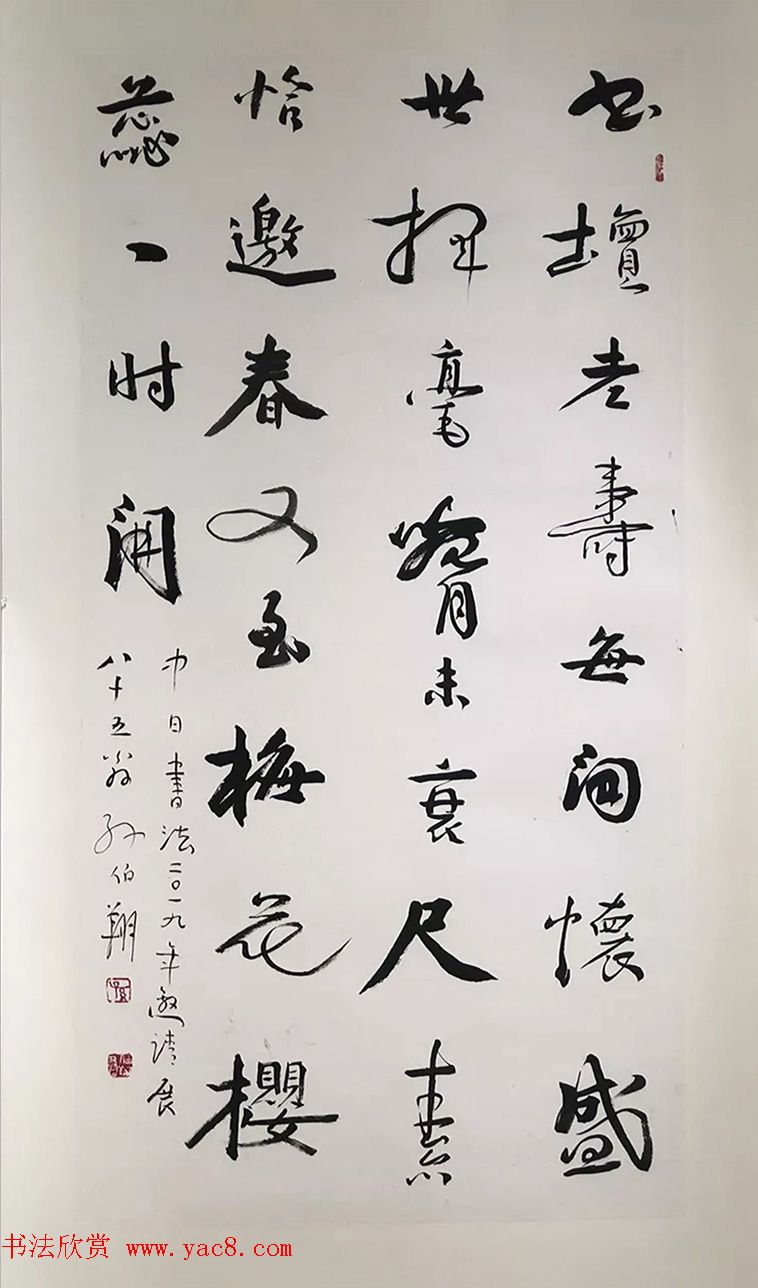 書壇老壽每懷盛
世揮毫臂未衰尺素
恰邀春又至梅花櫻
蕊一时開
中日書法二〇一九年邀請展
八十五翁孙伯翔
书法欣赏 www.yac8.com